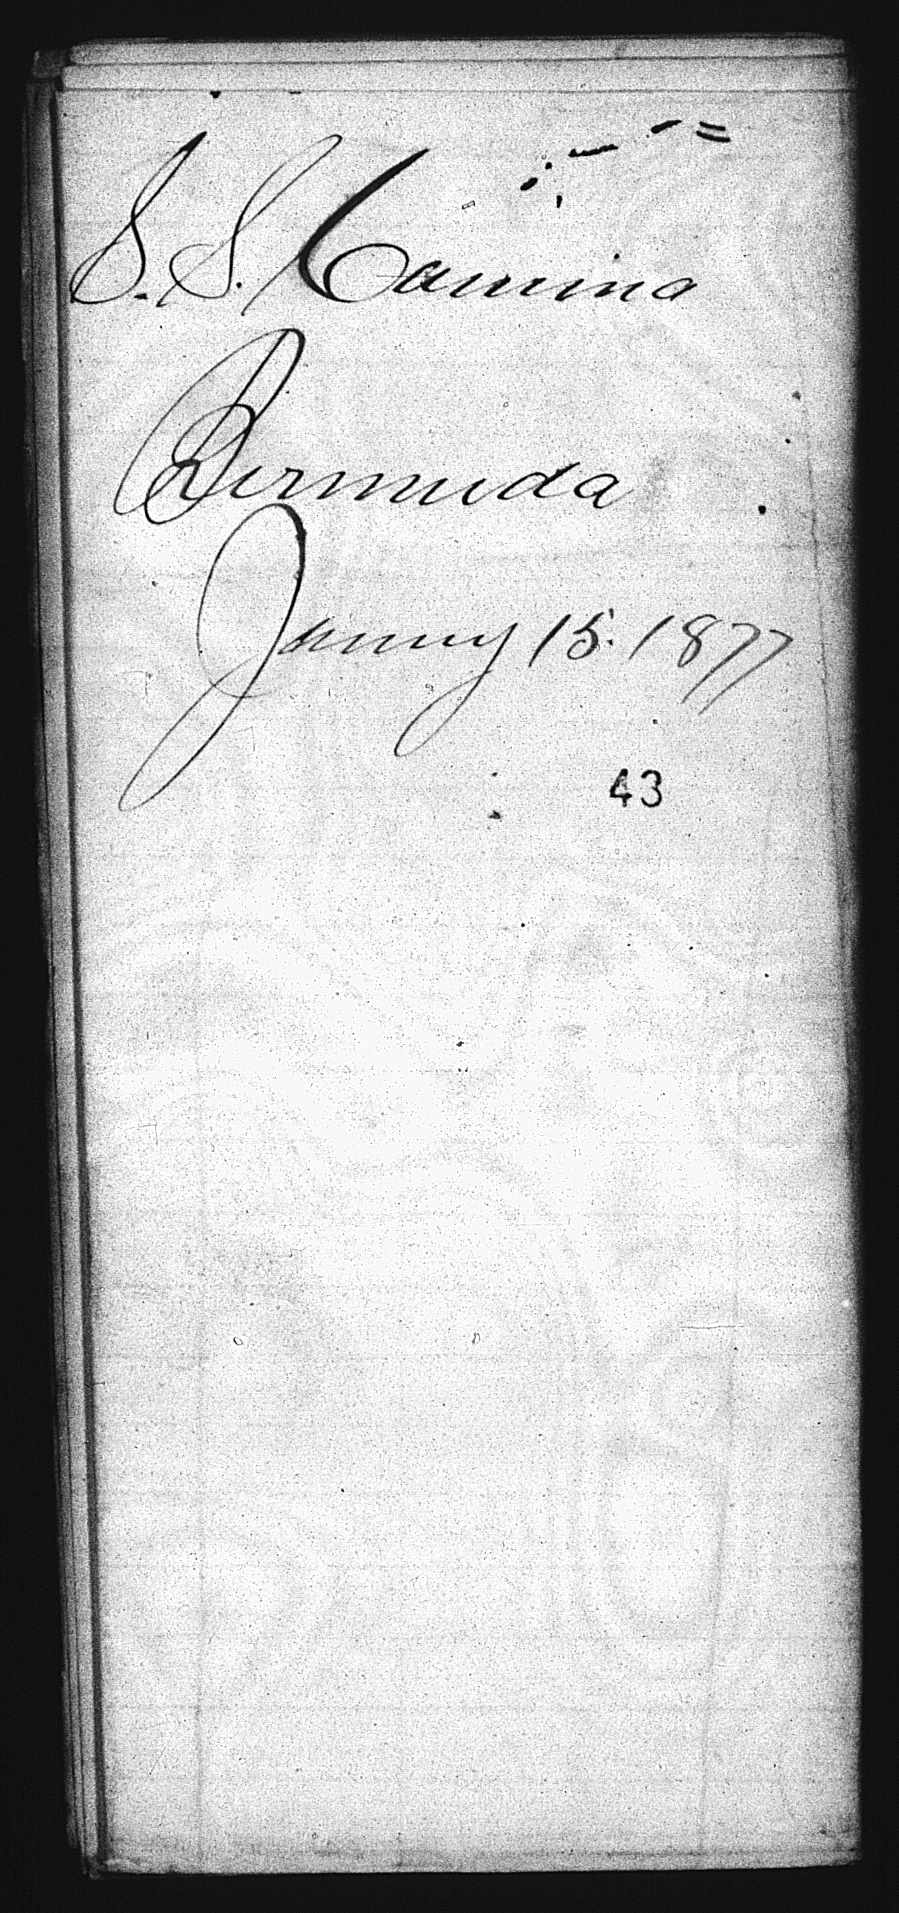 S. S. Camina
Bermuda
January 15. 1877
43